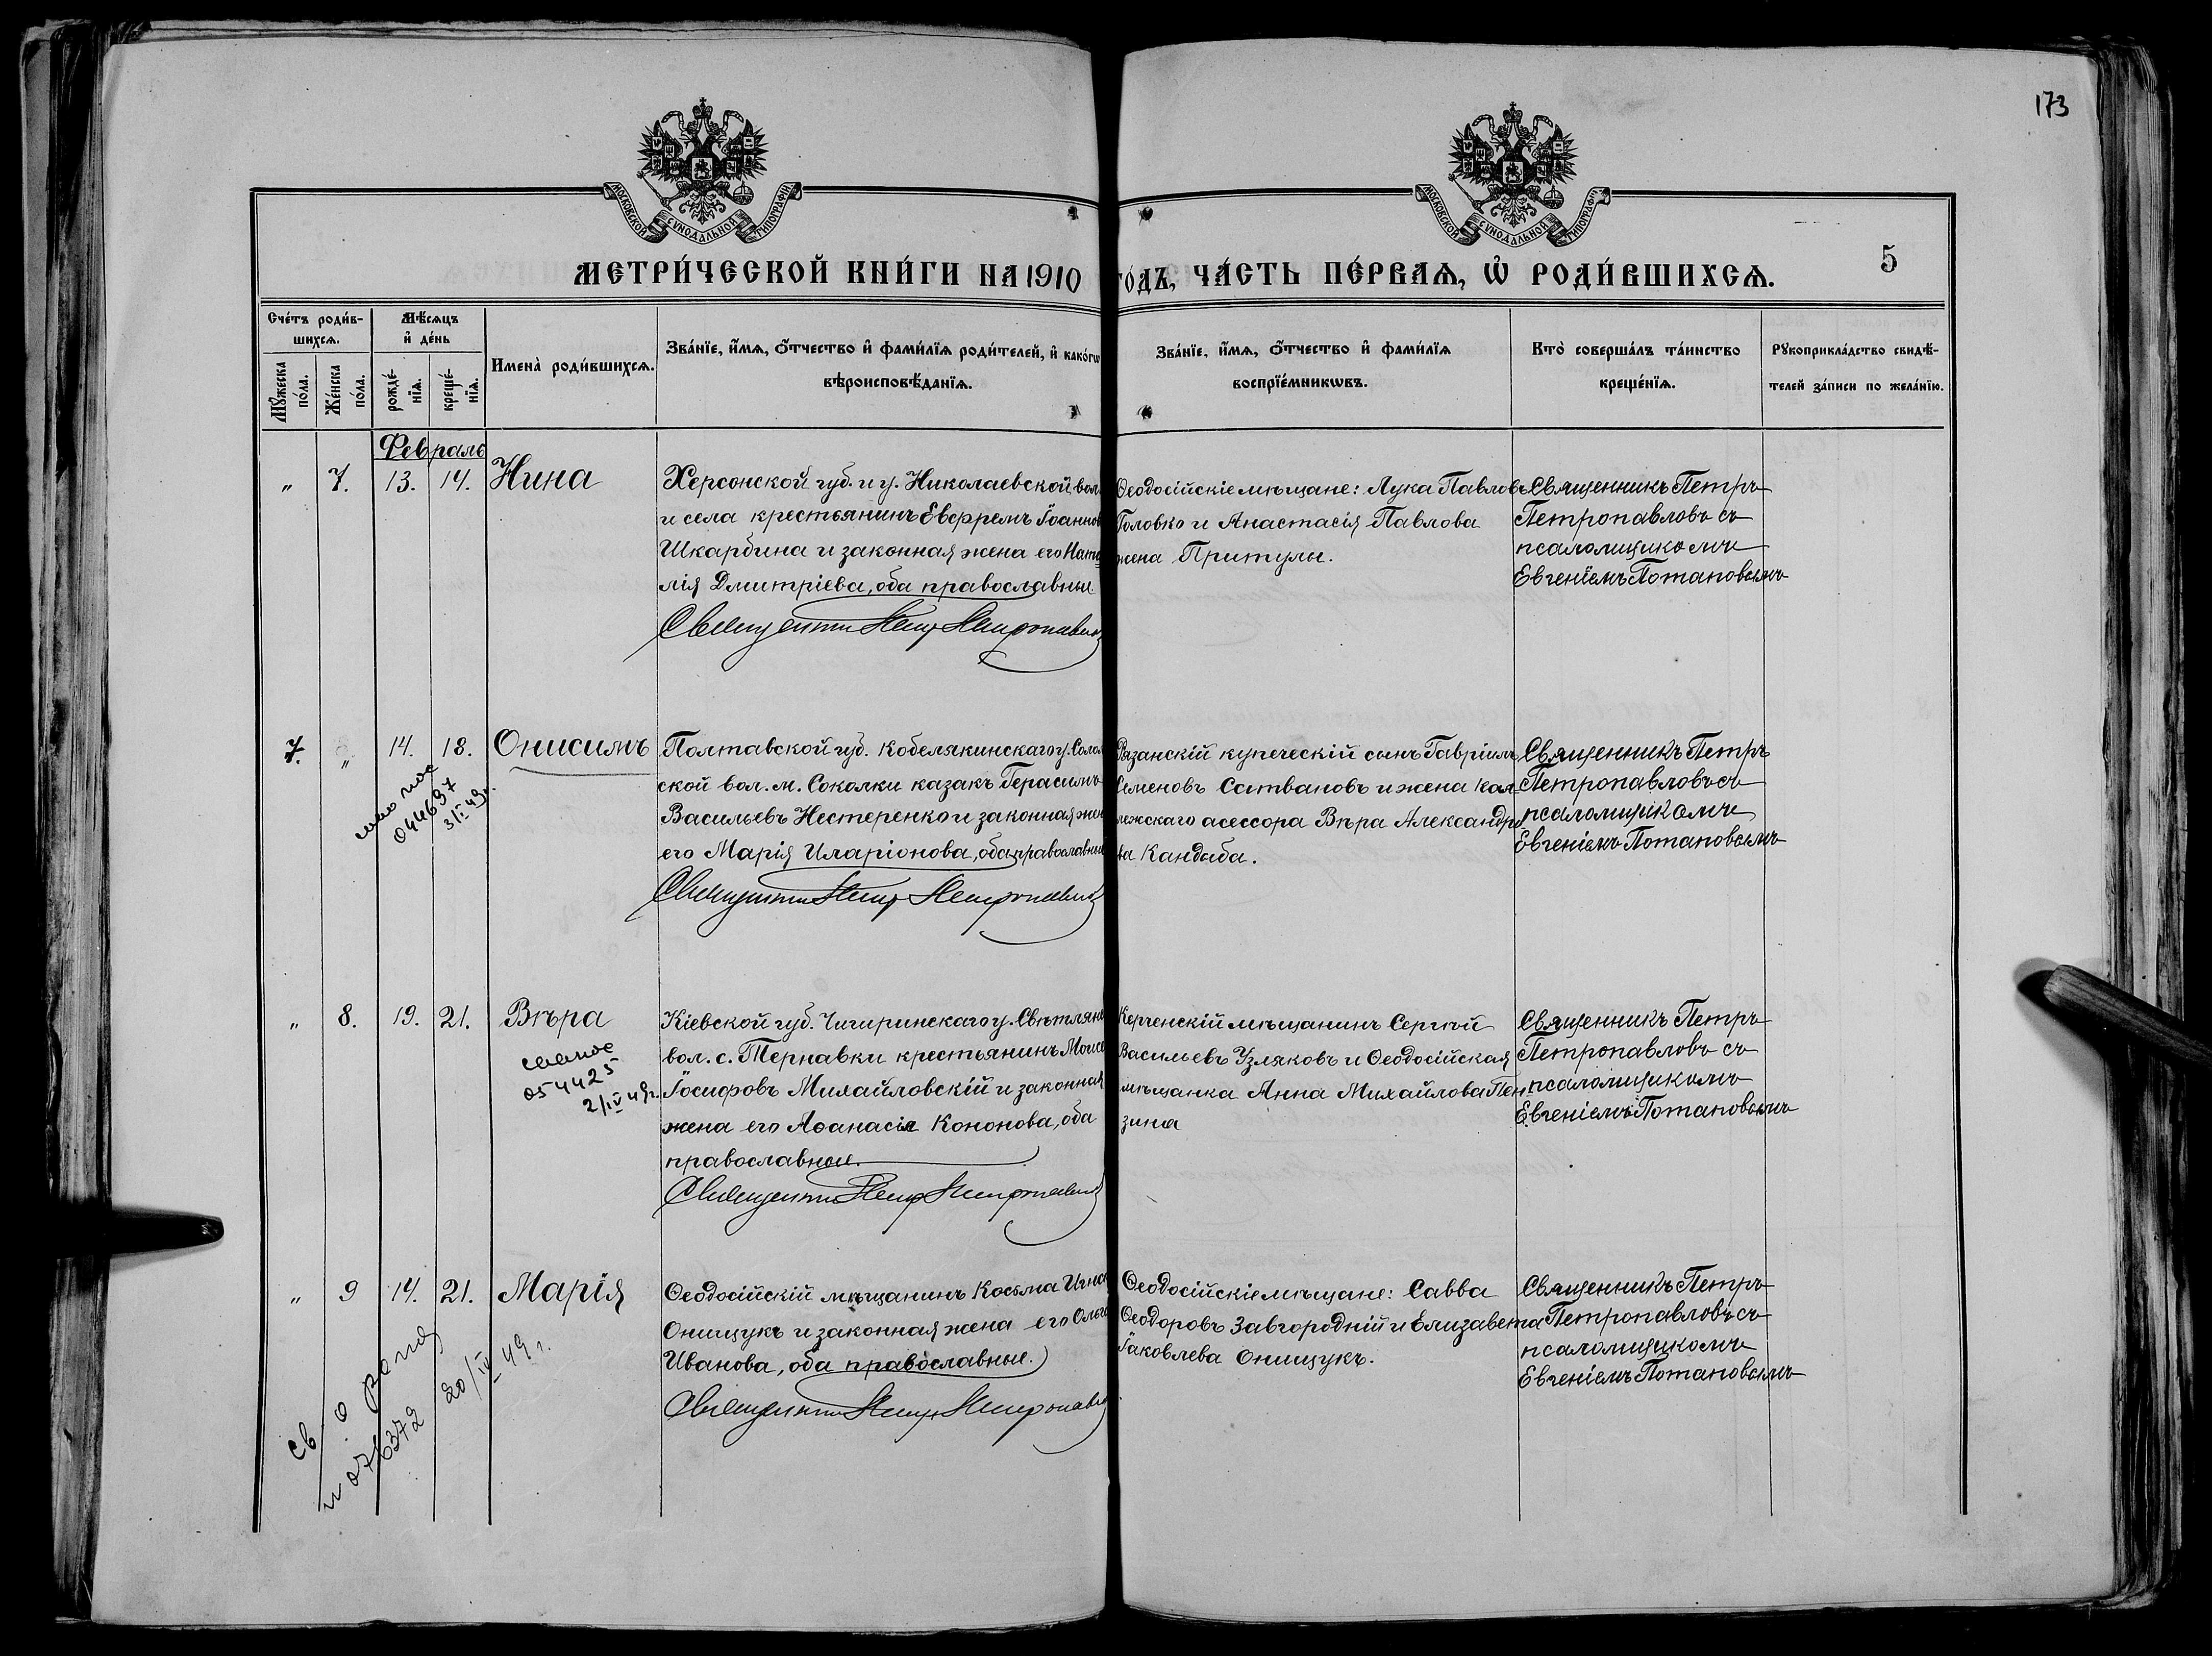 173
МОСКОВСКОЙ СУНОДАЛЬНОЙ ТИПОГРАФІИ
МОСКОВСКОЙ СУНОДАЛЬНОЙ ТИПОГРАФІИ
5
МЕТРИ́ЧЕСКОЙ КНИ́ГИ НА 1910 ГО́ДЪ, ЧА́СТЬ ПЕ́РВАѦ, Ѡ҆ РОДИ́ВШИХСѦ.
Сче́тъ роди́в-
шихсѧ.
Мꙋ́жеска по́ла.
Же́нска по́ла.
Мѣ́сѧцъ
и҆ де́нь
рожде́-
нїѧ.
креще́-
нїѧ.
И҆мена̀ роди́вшихсѧ.
Зва́нїе, и҆́мѧ, ѻ҆́тчество и҆ фами́лїѧ роди́телей, и҆ како́гѡ
вѣроисповѣ́данїѧ.
Зва́нїе, и҆́мѧ, ѻ҆́тчество и҆ фами́лїѧ
воспрїе́мникѡвъ.
Кто̀ соверша́лъ та́инство
креще́нїѧ.
Рꙋкоприкла́дство свидѣ́-
телей за́писи по жела́нїю.
Февраль
„ 7. 13. 14. Нина
Херсонской губ. и у. Николаевской вол.
и села крестьянинъ Евфремъ Іоаннов
Шкарбина и законная жена его Ната
лія Дмитріева, оба православные.
Священникъ Петр Петропавловъ
Ѳеодосійскіе мѣщане: Лука Павловъ
Головко и Анастасія Павлова
жена Притулы.
Священникъ Петръ
Петропавловъ съ
псаломщикомъ
Евгеніемъ Потаповымъ
7. „ 14. 18. Онисимъ
044697
3/II 49г.
Полтавской губ. Кобелякинскаго у. Сокол
ской вол. м. Соколки казакъ Герасимъ
Васильевъ Нестеренко и законная жен
его Марія Иларіонова, оба православные
Священникъ Петр Петропавловъ
Рязанскій купеческій сынъ Гавріилъ
Семеновъ Сатвановъ и жена кол-
лежскаго асессора Вѣра Александро
ва Кандыба.
Священникъ Петръ
Петропавловъ съ
псаломщикомъ
Евгеніемъ Потаповымъ
„ 8. 19. 21. Вѣра
054425
2/IV 49г.
Кіевской губ. Чигиринскаго у. Свѣтлянс
вол. с. Тернавки крестьянинъ Моисе
Іосифовъ Михайловскій и законная
жена его Аѳанасія Кононова, оба
православные.
Священникъ Петр Петропавловъ
Керченскій мѣщанинъ Сергѣй
Васильевъ Узляковъ и Ѳеодосійская
мѣщанка Анна Михайлова Пен-
зина
Священникъ Петръ
Петропавловъ съ
псаломщикомъ
Евгеніемъ Потаповымъ
„ 9 14. 21. Марія
св о рожд
н 076372 20/IV 49 г.
Ѳеодосійскій мѣщанинъ Косьма Игна
Онищукъ и законная жена его Ольга
Иванова, оба православные.
Священникъ Петр Петропавлов
Ѳеодосійскіе мѣщане: Савва
Ѳеодоровъ Завгородній и Елизавета
Іаковлева Онищукъ.
Священникъ Петръ
Петропавловъ съ
псаломщикомъ
Евгеніемъ Потаповымъ